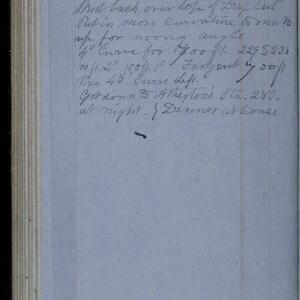 Went back over top of Big Cut
Put in more curvature to make
up for wrong angle
4° Curve for 700 ft. 229 to 236
100 ft. 2° 100 ft 1° Tangent 700 ft
then 4° Curve Left.
Got down to Atherton's Sta. 280.
at night. & Dinner at house